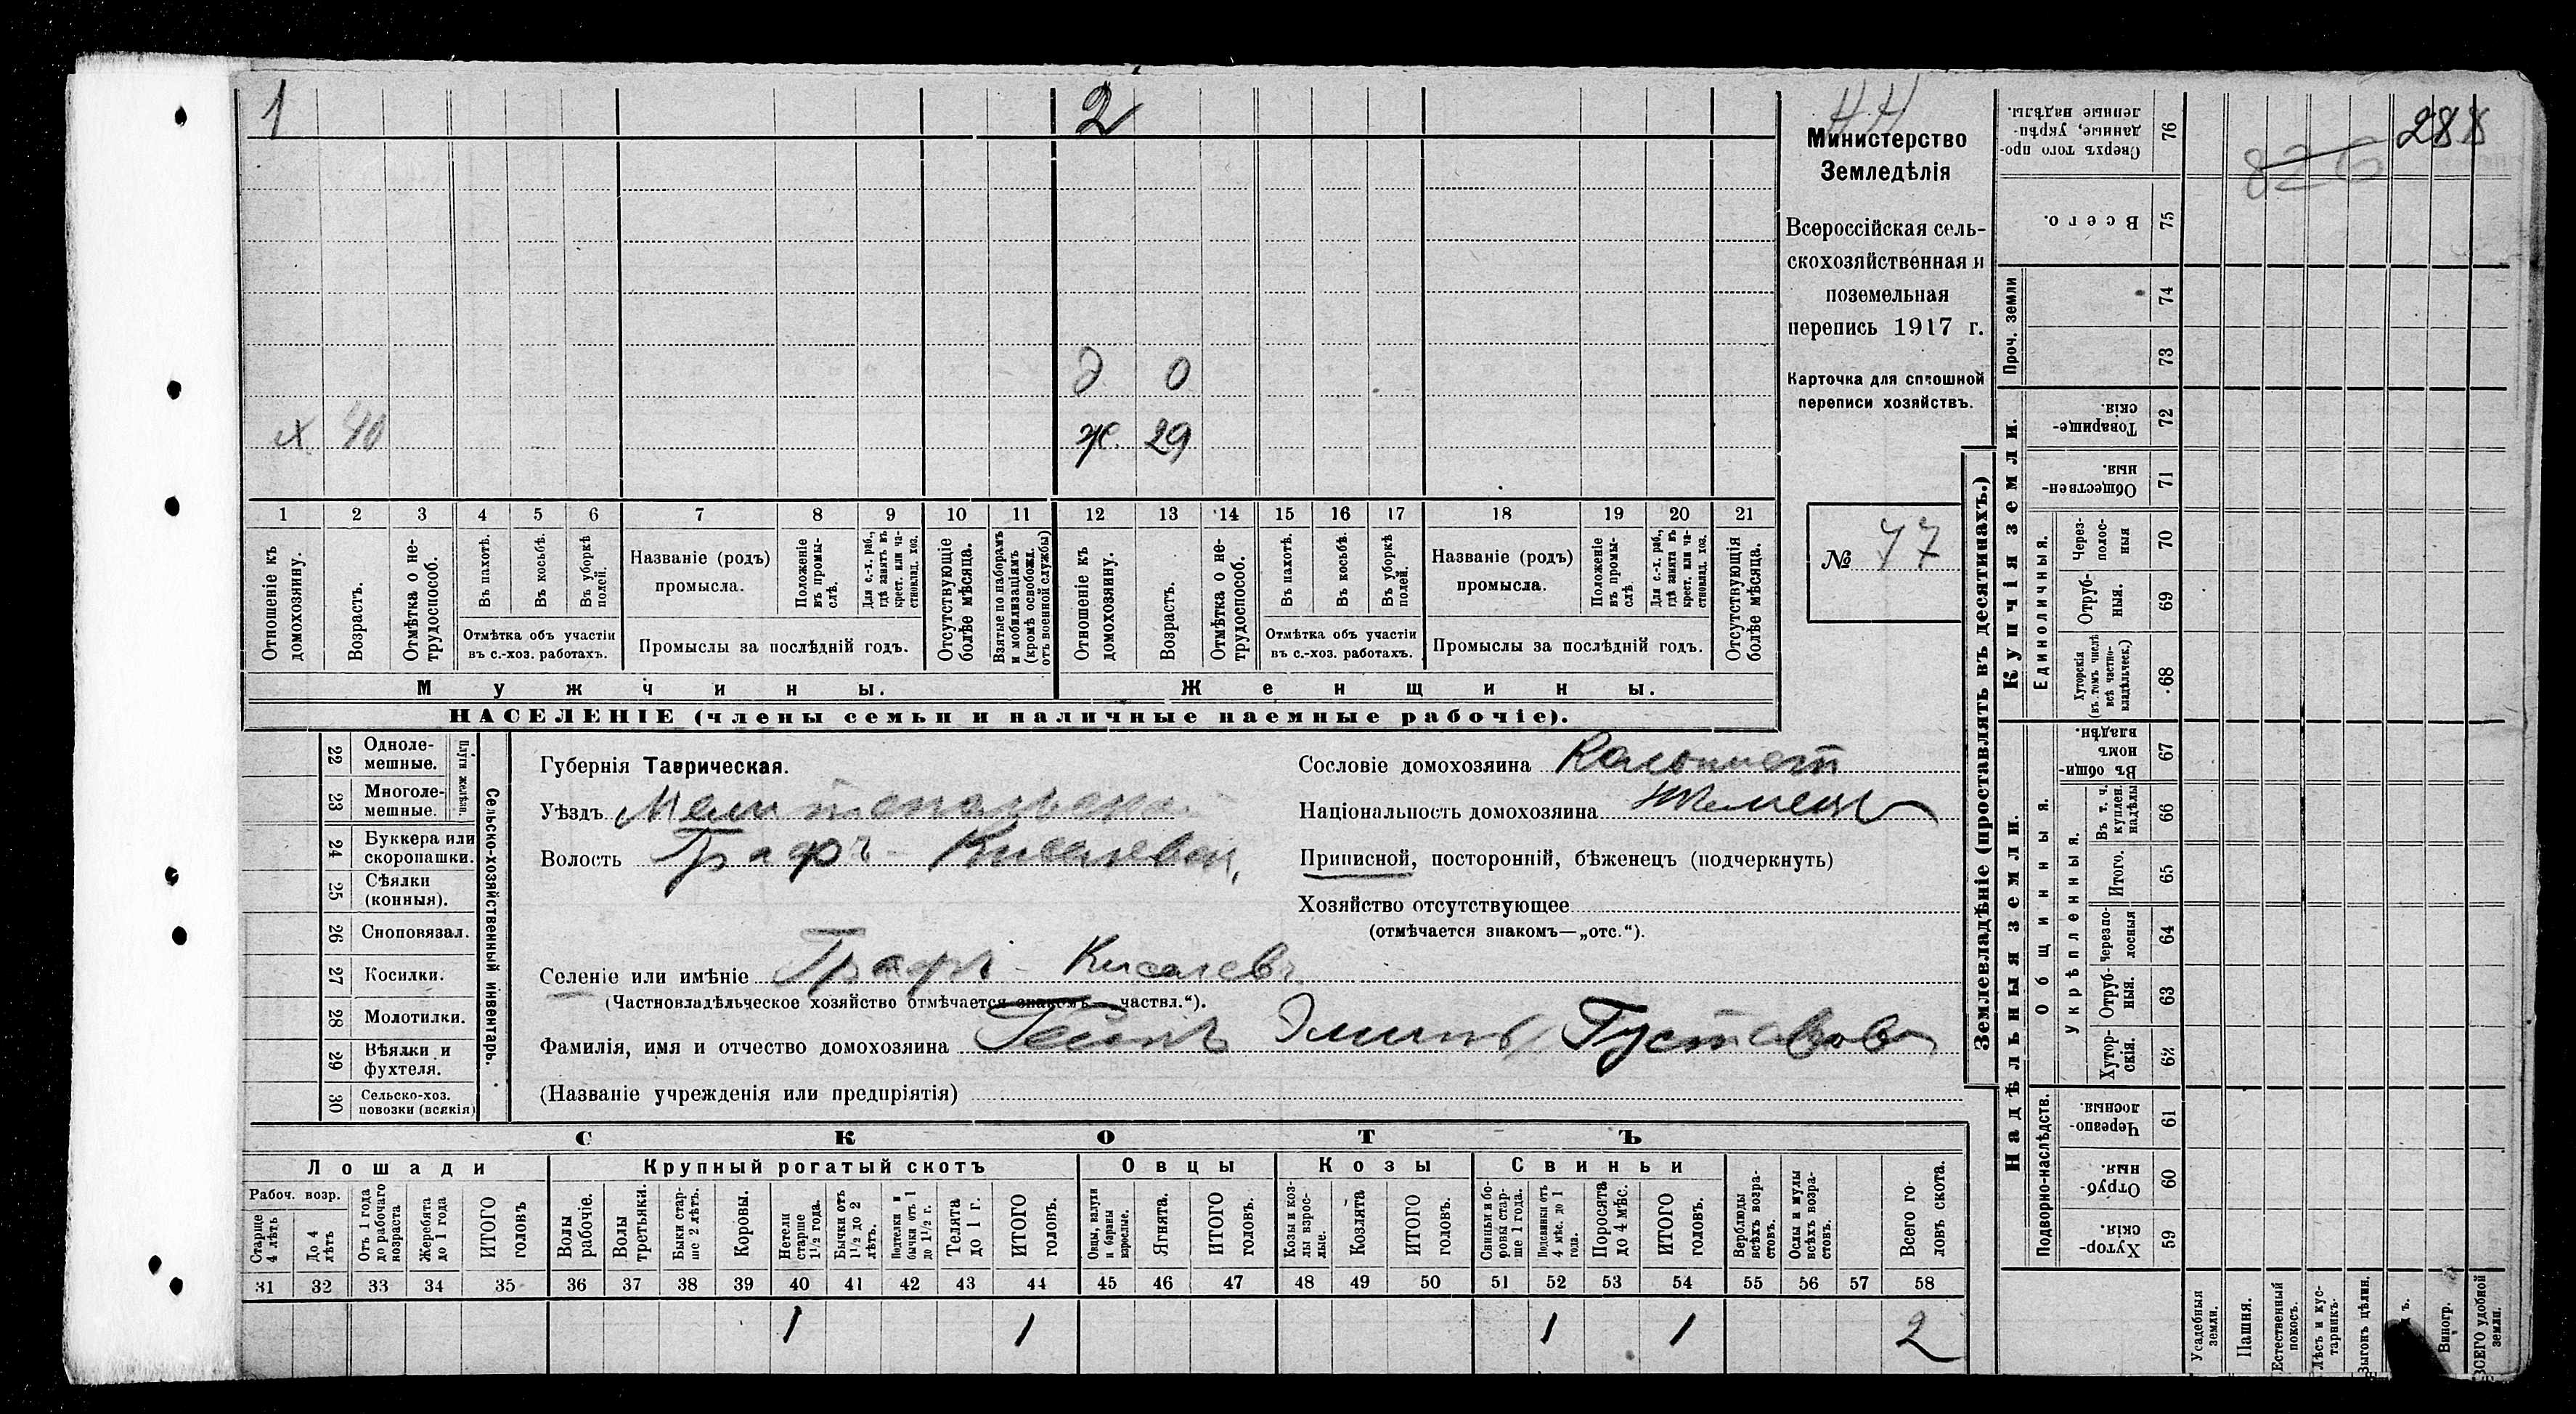 1
2
44
Министерство
Земледѣлія
Всероссійская сель-
скохозяйственная и
поземельная
перепись 1917 г.
Карточка для сплошной
переписи хозяйствъ.
№ 47
д 0
х 40 ж. 29
1 2 3 4 5 6 7 8 9 10 11 12 13 14 15 16 17 18 19 20 21
Отношеніе къ домохозяину.
Возрастъ.
Отмѣтка о не-трудоспособ.
Въ пахотѣ.
Въ косьбѣ.
Въ уборкѣ полей.
Отмѣтка объ участіи
въ с.-хоз. работахъ.
Названіе (родъ)
промысла.
Положеніе въ промы-слѣ.
Для с.-х. раб., гдѣ занятъ въ крест. или ча-стновлад. хоз.
Промыслы за послѣдній годъ.
Отсутствующіе болѣе мѣсяца.
Взятые по наборамъ и мобилизаціямъ (кромѣ освобожд. отъ военной службы)
Отношеніе къ домохозяину.
Возрастъ.
Отмѣтка о не-трудоспособ.
Въ пахотѣ.
Въ косьбѣ.
Въ уборкѣ полей.
Отмѣтка объ участіи
въ с.-хоз. работахъ.
Названіе (родъ)
промысла.
Положеніе въ промы-слѣ
Для с.-х. раб., гдѣ занята въ крест. или ча-стновлад. хоз.
Промыслы за послѣдній годъ.
Отсутствующія болѣе мѣсяца.
Мужчины.
Женщины.
НАСЕЛЕНІЕ (члены семьи и наличные наемные рабочіе).
22 Одноле-мешные.
23 Многоле-мешные.
Плуги желѣзн.
24 Буккера или скоропашки.
25 Сѣялки (конныя).
26 Сноповязал.
27 Косилки.
28 Молотилки.
29 Вѣялки и фухтеля.
30 Сельско-хоз. повозки (всякія)
Сельско-хозяйственный инвентарь.
Губернія Таврическая.
Уѣздъ Мелитопольскій
Волость Графъ-Киселевск.
Селеніе или имѣніе Графъ-Киселевъ
(Частновладѣльческое хозяйство отмѣчается знакомъ—„частвл.“).
Фамилія, имя и отчество домохозяина Гейнъ Эмиль Густавов
(Названіе учрежденія или предпріятія)
Сословіе домохозяина Колонист
Національность домохозяина Немец
Приписной, посторонній, бѣженецъ (подчеркнуть)
Хозяйство отсутствующее
(отмѣчается знакомъ—„отс.“).
СКОТЪ
Лошади
Крупный рогатый скотъ
Овцы
Козы
Свиньи
Рабоч. возр.
Старше 4 лѣтъ
До 4 лѣтъ
Отъ 1 года до рабочаго возраста
Жеребята до 1 года
ИТОГО головъ
Волы рабочіе.
Волы третьяки.
Быки стар-ше 2 лѣтъ.
Коровы.
Нетели старше 1½ года.
Бычки отъ 1½ до 2 лѣтъ.
Подтелки и бычки отъ 1 до 1½ г.
Телята до 1 г.
ИТОГО головъ.
Овцы, валухи и бараны взрослые.
Ягнята.
ИТОГО головъ.
Козы и коз-лы взрос-лые.
Козлята
ИТОГО головъ.
Свиньи и бо-ровы стар-ше 1 года.
Подсвинки отъ 4 мѣс. до 1 года.
Поросята до 4 мѣс.
ИТОГО головъ.
Верблюды всѣхъ возра-стовъ.
Ослы и мулы всѣхъ возра-стовъ.
Всего го-ловъ скота.
31 32 33 34 35 36 37 38 39 40 41 42 43 44 45 46 47 48 49 50 51 52 53 54 55 56 57 58
1 1 1 1 2
Землевладѣніе (проставлять въ десятинахъ.)
Купчія земли.
Надѣльныя земли.
Сверхъ того про-данные, укрѣп-ленные надѣлы. 76
Всего. 75
Проч. земли
74
73
Товарище-скія. 72
Обществен-ныя. 71
Единоличныя.
Через-полос-ныя 70
Отруб-ныя. 69
Хуторскія (въ томъ числѣ всѣ частно-владѣльческ.) 68
Общинныя.
Въ общин-номъ владѣн. 67
Укрѣпленныя.
Въ т. ч. куплен. надѣлы 66
Итого. 65
черезпо-лосныя 64
Отруб-ныя. 63
Хутор-скія. 62
Подворно-наслѣдств.
Черезпо-лосныя. 61
Отруб-ныя. 60
Хутор-скія. 59
Усадебныя земли.
Пашня.
Естественный покосъ.
Лѣсъ и кус-тарникъ.
Выгонъ цѣлин.
Виногр.
ВСЕГО удобной земли.
826
288